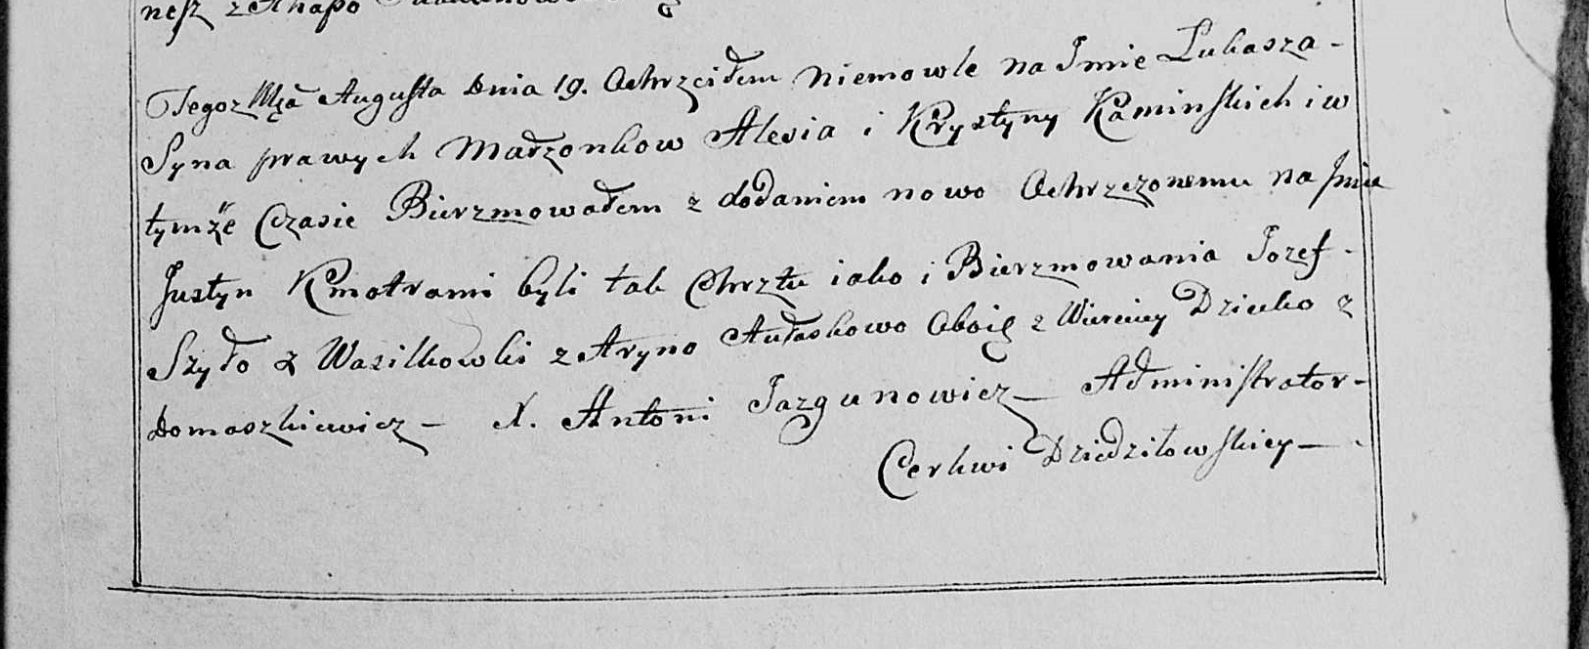 nesz z Ahapo
Tegoz Mca Augusta Dnia 19. Ochrzciłem Niemowle na Jmie Łukasza -
Syna prawych Małzonkow Alesia i Krystyny Kaminskich i w
tymże Czasie Bierzmowałem z dodaniem nowo Ochrzczonemu na Jmie
Justyn Kmotrami byli tak Chrztu iako i Bierzmowania Jozef -
Szyło z Wasilkowki z Aryno Aułaskowo Oboie z Dziecko z
Domaszkiewicz - X. Antoni Jazgunowicz - Administrator -
Cerkwi Dziedziłowskiey -